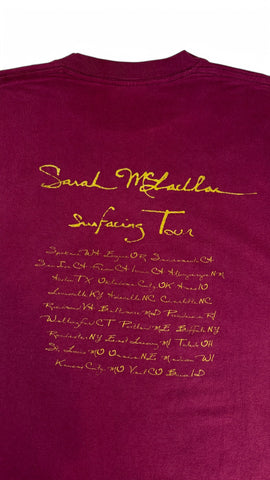 Sarah McLachlan
Surfacing Tour
Spokane WA Eugene OR, Sacramento, CA
CA CA Albuquerque NM
Austin TX Oklahoma City, OK
Louisville KY Asheville NC Charlotte, NC
Richmond VA Baltimore MD Providence RI
Wallingford CT Portland ME Buffalo, NY
Rochester, NY East Lansing MI Toledo OH
St. Louis MO Omaha NE Madison WI
Kansas City, MO Vail CO Boise ID